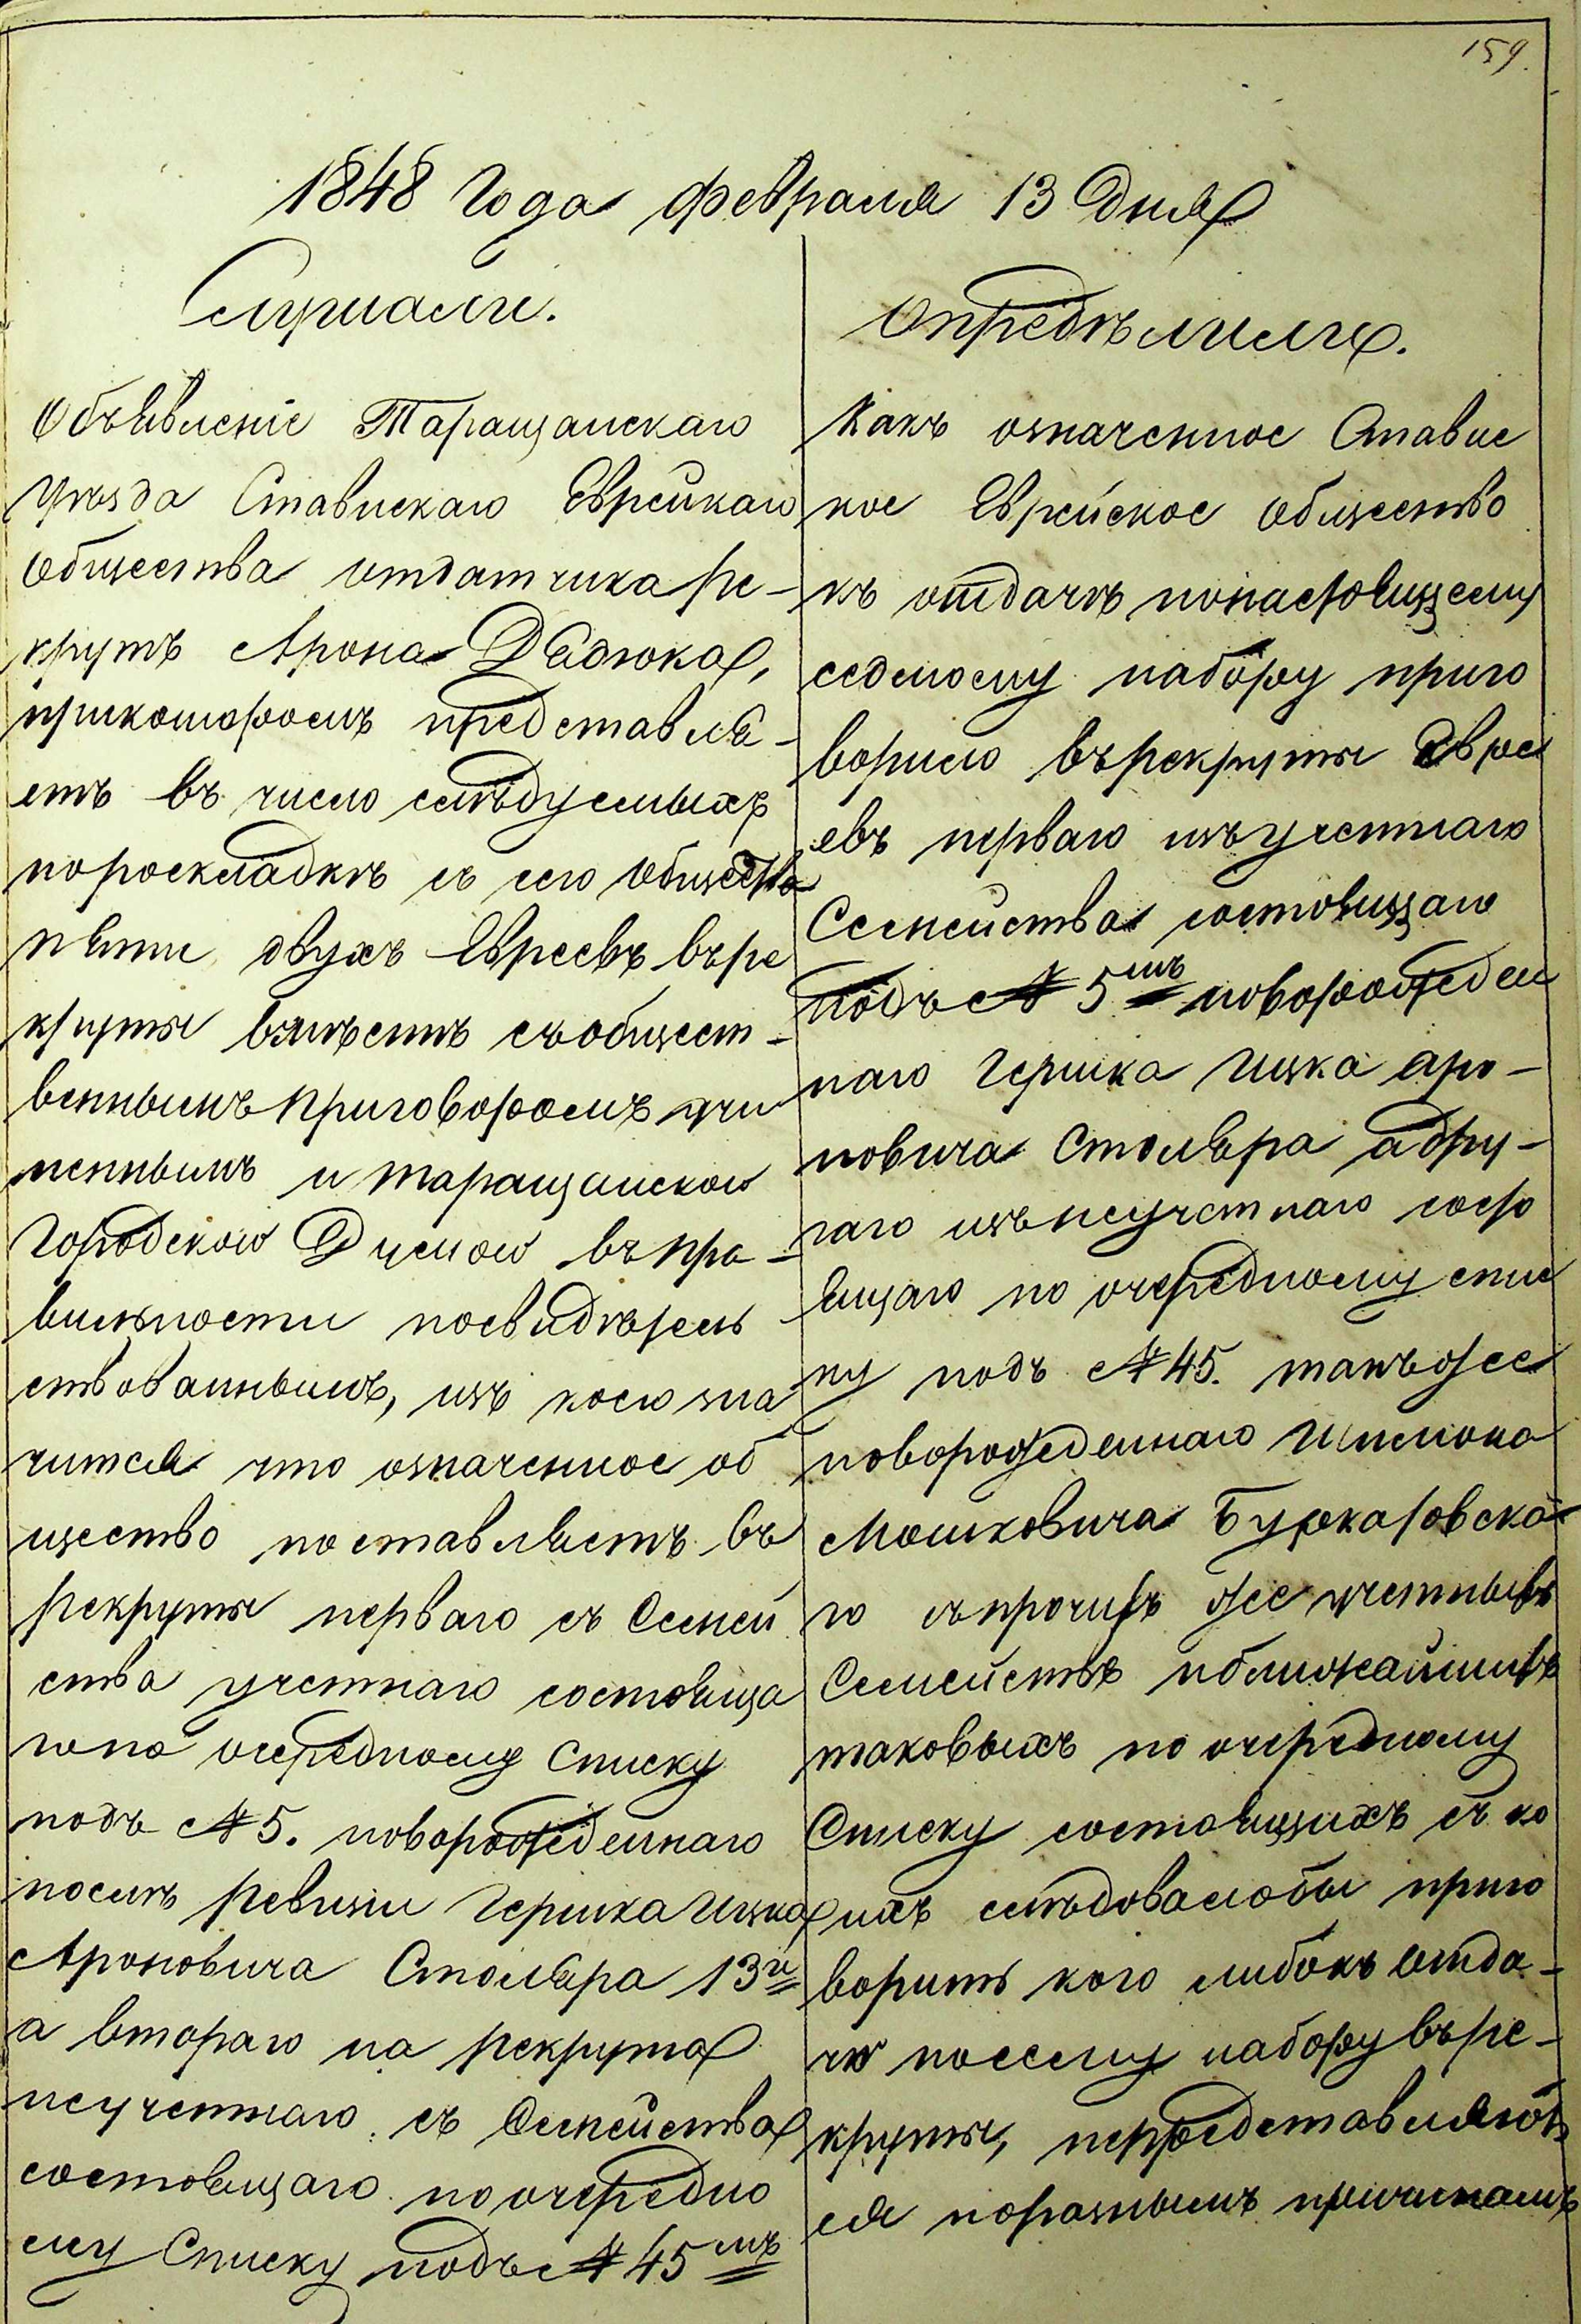 159.
1848 Года февраля 13 Дня
Слушали.
Объявленіе Таращанскаго
уѣзда Ставискаго Еврейкаго
Общества отдатчика ре-
крутъ Арона Дядюка,
прикоторомъ представля-
етъ въ число слѣдуемыхъ
пороскладкѣ съ сего общества
пяти двухъ Евреевъ въре
круты вмѣстѣ съобщест-
веннымъ приговоромъ учи
неннымъ и таращанскою
Городскою Думою въпра-
вильности посвидѣтель
ствованнымъ, изъ коего зна
чится что означенное об
щество поставляетъ въ
рекруты перваго съ Семей
ства учетнаго состояща
гопо очередному списку
подъ № 5. новорожденнаго
послѣ ревизіи Гершка Ицка
Ароновича Столяра 13и
а втораго на рекрута
неучетнаго съ Семейства
состоящаго поочередно
му Списку подъ № 45мъ
Опредѣлили.
Какъ означенное Ставис
кое Еврейское общество
къ отдачѣ понастоящему
седмому набору приго
ворило върекруты Евре
евъ перваго изъучетнаго
Семейства состоящаго
подъ № 5мъ новорожден
наго Гершка Ицка Аро-
новича Столяра адру-
гаго изънеучетнаго состо
ящаго по очередному спис
ку подъ № 45. такъже
новорожденнаго Шлиома
Мошковича Буркатовска
го съпрочихъ же учетныхъ
Семействъ иближайшихъ
таковыхъ по очередному
Списку состоящихъ съ ко
ихъ слѣдовалобы приго
ворить кого либокъ отда-
чи посему набору въре-
круты, непредставляют
ся поразнымъ причинамъ